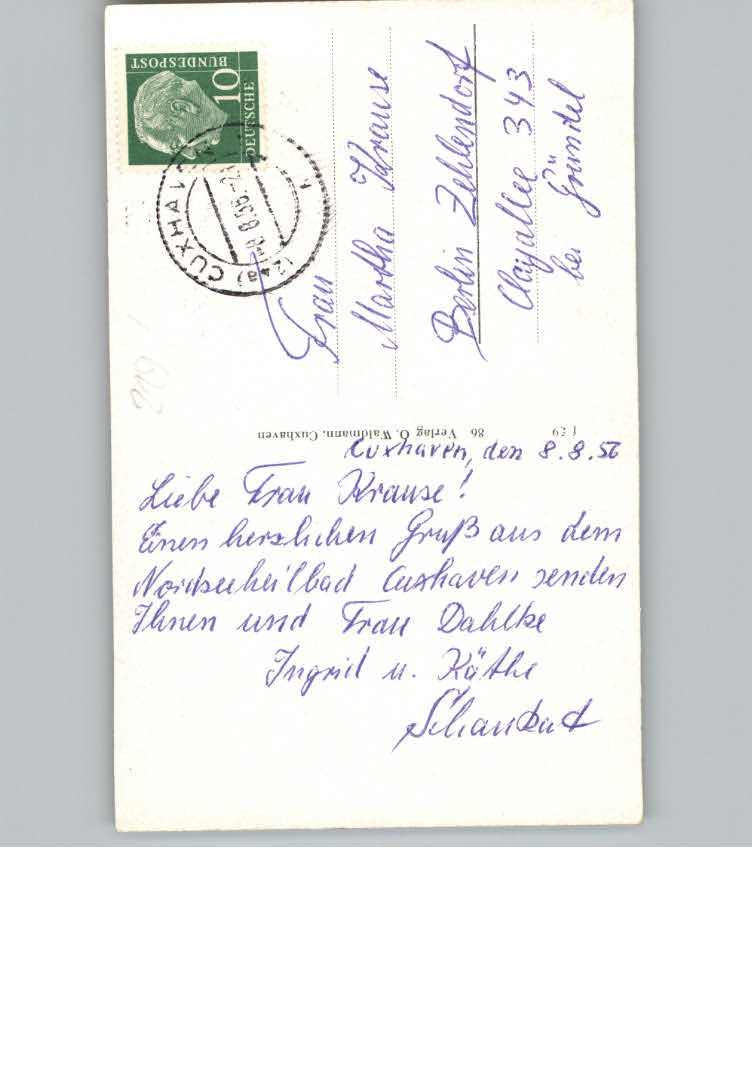 DEUTSCHE
BUNDESPOST
10
(24a) CUXHAV
-8.8.56-2
Frau
Martha Krause
Berlin Zehlendorf
Clayallee 343
bei Gründel
86 Verlag O. Waldmann, Cuxhaven
Cuxhaven, den 8.8.56
Liebe Frau Krause!
Einen herzlichen Gruß aus dem
Nordseeheilbad Cuxhaven senden
Ihnen und Frau Dahlke
Ingrid u. Käthe